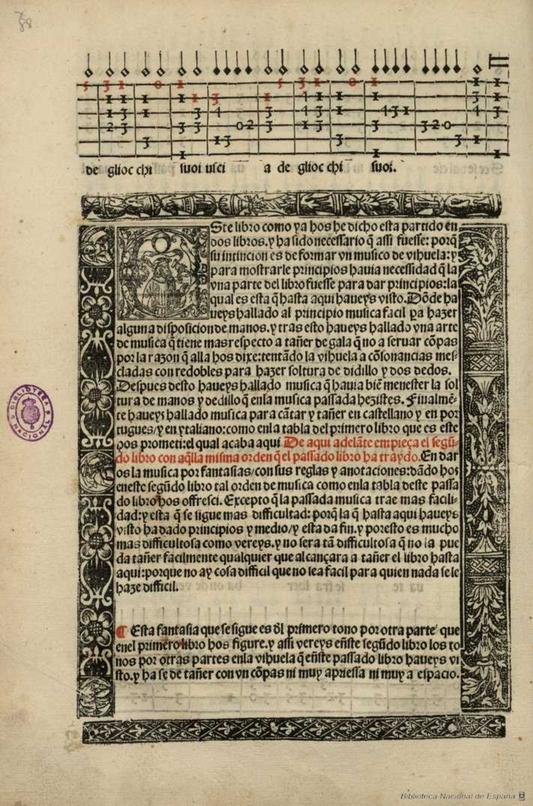 de glioc chi suoi usci a de glioc chi suoi.
Ste libro como ya hos he dicho esta partido en
dos libros. y ha sido necessario q̃ assi fuesse: porq̃
su intincion es de formar vn musico de vihuela: y
para mostrarle principios hauia necessidad q̃ la
vna parte del libro fuesse para dar principios: la
qual es esta q̃ hasta aqui haueys visto. Dõde ha
ueys hallado al principio musica facil pa hazer
alguna disposicion de manos. y tras esto haueys hallado vna arte
de musica q̃ tiene mas respecto a tañer de gala q̃ no a seruar cõpas
por la razon q̃ alla hos dixe: tentãdo la vihuela a cõsonancias mes-
cladas con redobles para hazer soltura de didillo y dos dedos.
Despues desto haueys hallado musica q̃ hauia biẽ menester la sol
tura de manos y dedillo q̃ enla musica passada hezistes. Finalmẽ-
te haueys hallado musica para cãtar y tañer en castellano y en por
tugues/ y en ytaliano: como enla tabla del primero libro que es este
hos prometi: el qual acaba aqui De aqui adelãte empieça el segũ
do libro con aq̃lla misma orden q̃ el passado libro ha traydo. En dar
os la musica por fantasias/ con sus reglas y anotaciones: dãdo hos
eneste segũdo libro tal orden de musica como enla tabla deste passa
do libro hos offresci. Excepto q̃ la passada musica trae mas facili-
dad: y esta q̃ se sigue mas difficultad: porq̃ la q̃ hasta aqui haueys
visto ha dado principios y medio/ y esta da fin. y por esto es mucho
mas difficultosa como vereys. y no sera tã difficultosa q̃ no la pue
da tañer facilmente qualquier que alcançara a tañer el libro hasta
aqui: porque no ay cosa difficil que no sea facil para quien nada se le
haze difficil.
¶ Esta fantasia que se sigue es dl̃ primero tono por otra parte que
enel primero libro hos figure. y assi vereys eñste segũdo libro los to
nos por otras partes enla vihuela q̃ eñste passado libro haueys vi
sto. y ha se de tañer con vn cõpas ni muy apriessa ni muy a espacio.
BIBLIOTECA NACIONAL
Biblioteca Nacional de España